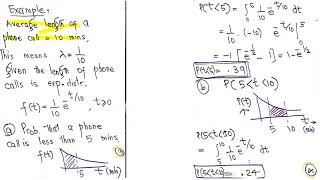 Example:
Average length of a
phone call = 10 mins.
This means λ = 1/10
Given the length of phone
calls is exp. distr.
f(t) = 1/10 e^-t/10, t>0
(a) Prob. that a phone
call is less than 5 mins.
f(t)
5 t (min)
P(t<5) = ∫ 5 0 1/10 e^-t/10 dt
= 1/10 (-10) e^-t/10 | 5 0
= -1 [e^-1/2 - 1] = 1 - e^-1/2
P(t<5) = .39
(b) P(5<t<10)
f(t)
5 10 t (min)
P(5<t<10)
= ∫ 10 5 1/10 e^-t/10 dt
P(5<t<10) = .24